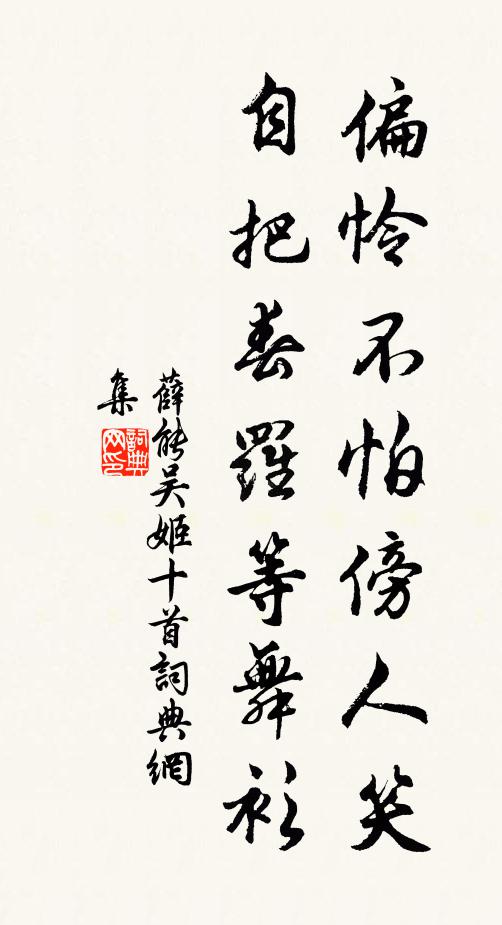 偏怜不怕傍人笑
自把春羅等舞衫
薛能吴姬十首詞典網
集
詞典网印